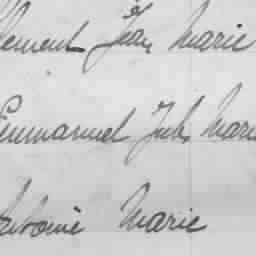 Clement Jean Marie
Emmanuel Jules Marie
Antoine Marie